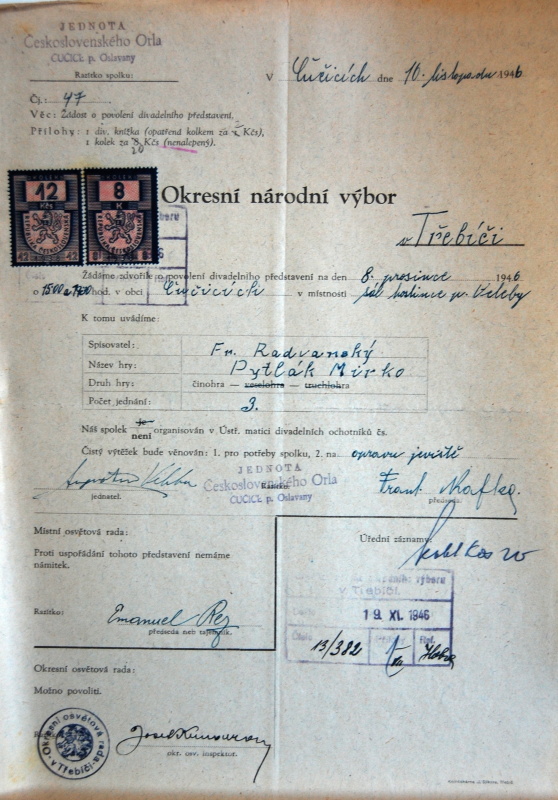 JEDNOTA
Československého Orla
ČUČICE p. Oslavany
Razítko spolku:
V Čučicích dne 10. listopadu 1946
Čj.: 47
Věc: Žádost o povolení divadelního představení.
Přílohy: 1 div. knížka (opatřená kolkem za Kčs),
1 kolek za 8 Kčs (nenalepený).
20
12
Kčs
8
K
Okresní národní výbor
v Třebíči
Žádáme zdvořile o povolení divadelního představení na den 8. prosince 1946
o 1500 a hod. v obci Čučicích v místnosti sál hostince p.
K tomu uvádíme:
Spisovatel: Fr. Radvanský
Název hry: Pytlák Mirko
Druh hry: činohra — veselohra — truchlohra
Počet jednání: 3.
Náš spolek je není organisován v Ústř. matici divadelních ochotníků čs.
Čistý výtěžek bude věnován: 1. pro potřeby spolku, 2. na opravu jeviště
JEDNOTA
Československého Orla
ČUČICE p. Oslavany
Razítko:
jednatel.
Frant.
předseda.
Místní osvětová rada:
Úřední záznamy:
Proti uspořádání tohoto představení nemáme
námitek.
v Třebíči.
19. XI. 1946
13/382
Razítko:
Emanuel Rez
předseda neb tajemník.
Okresní osvětová rada:
Možno povoliti.
Okresní osvětová rada
v Třebíči
Josef
okr. osv. inspektor.